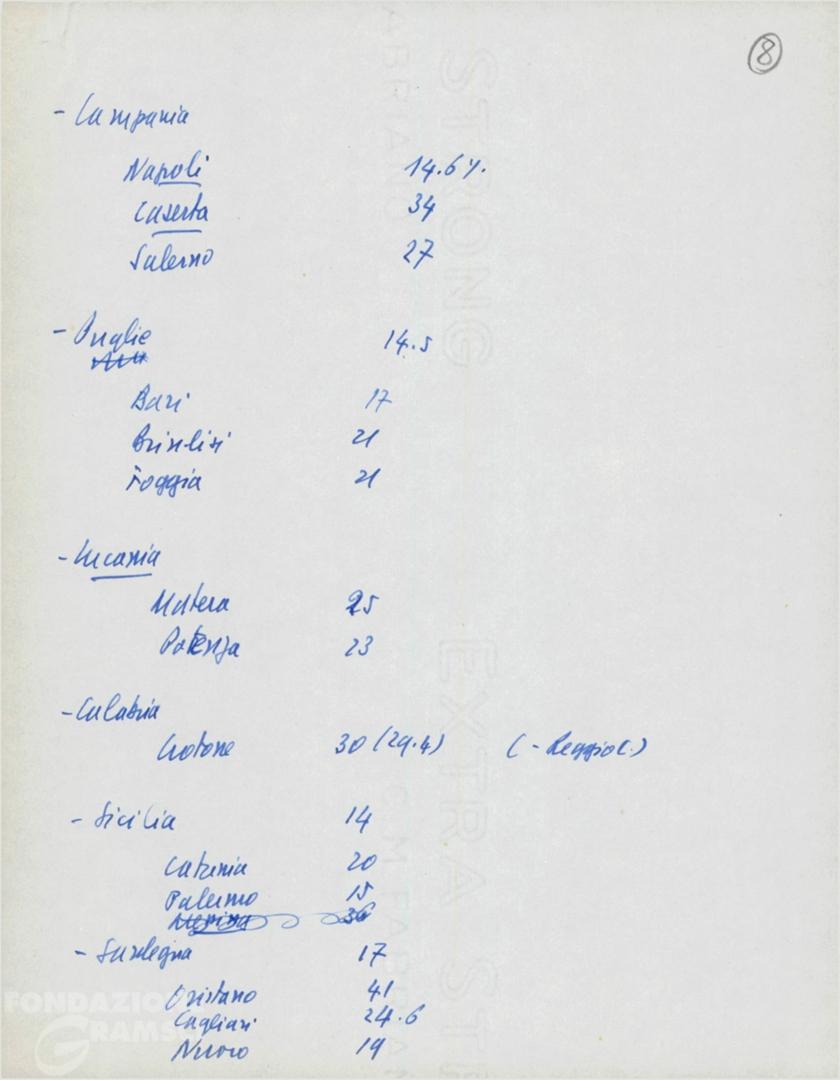 8
- Campania
Napoli 14.6%.
Caserta 34
Salerno 27
- Puglie 14.5
Bari 17
Brindisi 21
Foggia 21
- Lucania
Matera 25
Potenza 23
- Calabria
Crotone 30 (29.4) (- Reggio C.)
- Sicilia 14
Catania 20
Palermo 15
Messina 36
- Sardegna 17
Oristano 41
Cagliari 24.6
Nuoro 19
FONDAZIONE
GRAMSCI
STRONG
EXTRA ST